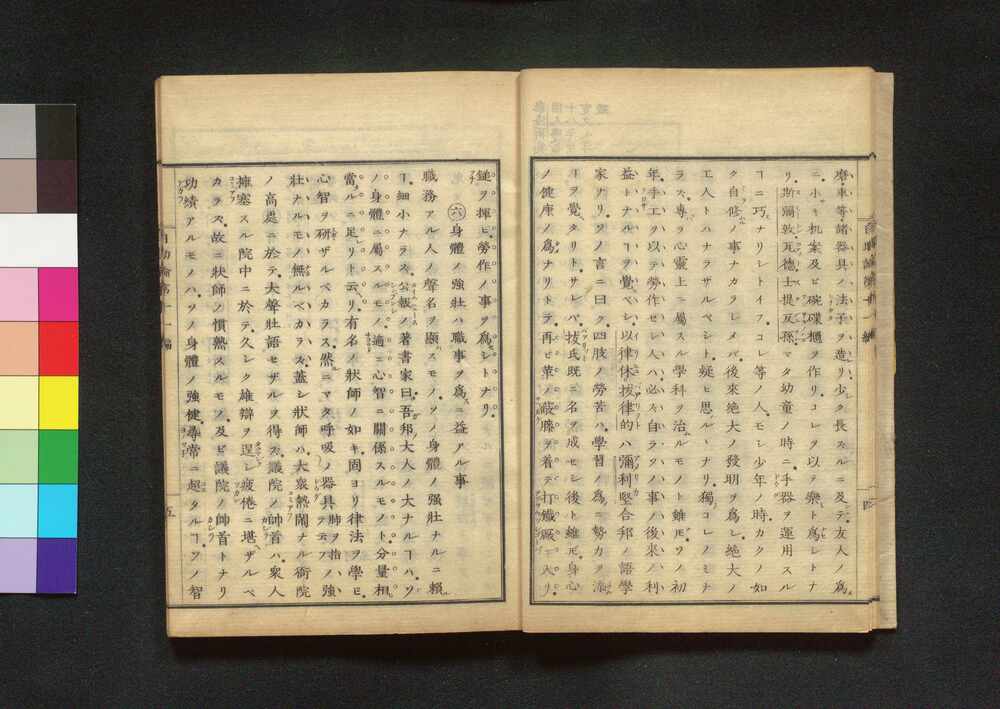 磨車等ノ諸器具ノ法子ヲ造リ少ク長スルニ及ンデ友人ノ為
ニ小キ机案及ビ碗碟櫃ヲ作リコレヲ以テ樂ト為シトナ
リ斯爾敦瓦德士提反孫マタ幼童ノ時ニ手器ヲ運用スル
ヿニ巧ナリシトイフコレ等ノ人モシ少年ノ時カクノ如
ク自修ノ事ナカラシメバ後來絶大ノ發明ヲ為シ絶大ノ
工人トハナラザルベシト疑ヒ思ルヽナリ獨コレノミナ
ラズ專ラ心靈上ニ屬スル學科ヲ治ルモノト雖𪜈ソノ初
年手工ヲ以テ勞作セシ人ハ必ズ自ラソノ事ノ後來ノ利
益トナルヿヲ覺ベシ以律休拔律的ハ彌利堅合邦ノ語學
家ナリソノ言ニ曰ク四肢ノ勞苦ハ學習ノ為ニ勢力ヲ添
ヿヲ覺タリトサレバ拔氏既ニ名ヲ成セシ後ト雖𪜈身心
ノ健康ノ為ナリトテ再ビ革ノ蔽膝ヲ着テ打鐵廠ニ入リ
鎚ヲ揮ヒ勞作ノ事ヲ為シトナリ
㊅身體ノ強壯ハ職事ヲ為ニ益アル事
職務アル人ノ聲名ヲ顯スモノソノ身體ノ强壯ナルニ賴
ヿ細小ナラズ公級ノ著書家曰吾邦大人ノ大ナルヿハソ
ノ身體ニ屬スルモノ適ニ心智ニ關係スルモノト分量相
當ルニ足リト云リ有名ノ狀師ノ如キ固ヨリ律法ヲ學ヒ
心智ヲ研ザルベカラズ然ニマタ呼吸ノ器具肺ヲ指ヲ云フノ強
壯ナルモノ無ルベカラズ蓋シ狀師ハ大衆熱閙ナル衙院
ノ高處ニ於テ大聲壯語セザルヲ得ズ議院ノ帥首ハ衆人
擁塞スル院中ニ於テ久シク雄辯ヲ逞シ疲倦ニ堪ザルベ
カラズ故ニ狀師ノ慣熟スルモノ及ビ議院ノ帥首トナリ
功績アルモノハソノ身體ノ強健尋常ニ超タルヿソノ智
四
五